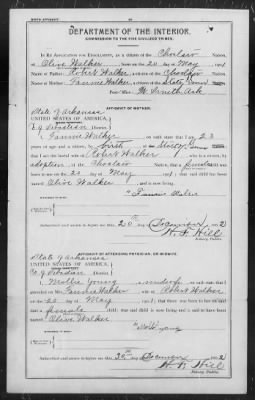 BIRTH AFFIDAVIT.
DEPARTMENT OF THE INTERIOR.
COMMISSION TO THE FIVE CIVILIZED TRIBES.
IN RE APPLICATION FOR ENROLLMENT, as a citizen of the Choctaw Nation,
of Olive Walker, born on the 20 day of May, 190
Name of Father: Robert Walker a citizen of the Choctaw Nation.
Name of Mother: Fannie Walker a citizen of the
Post-office Ft Smith Ark
AFFIDAVIT OF MOTHER.
State of Arkansas
UNITED STATES OF AMERICA,
Co of Sebastian District.
I, Fannie Walker, on oath state that I am 23
years of age and a citizen, by birth of the
that I am the lawful wife of Robert Walker, who is a citizen, by
adoption of the Choctaw Nation; that a female child was
born to me on the 20 day of May, 190; that said child has been
named Olive Walker, and is now living.
Fannie Walker
Subscribed and sworn to before me this 20th day of December, 1902
H. F. Hill
Notary Public.
AFFIDAVIT OF ATTENDING PHYSICIAN, OR MIDWIFE.
State of Arkansas
UNITED STATES OF AMERICA,
Co of Sebastian District.
I, Mollie Young, a midwife, on oath state that I
attended on Mrs. Fannie Walker, wife of Robert Walker
on the 20 day of May, 190; that there was born to her on said date a
female child; that said child is now living and is said to have been
named Olive Walker
Mollie Young
Subscribed and sworn to before me this 20th day of December, 1902
H. F. Hill
Notary Public.